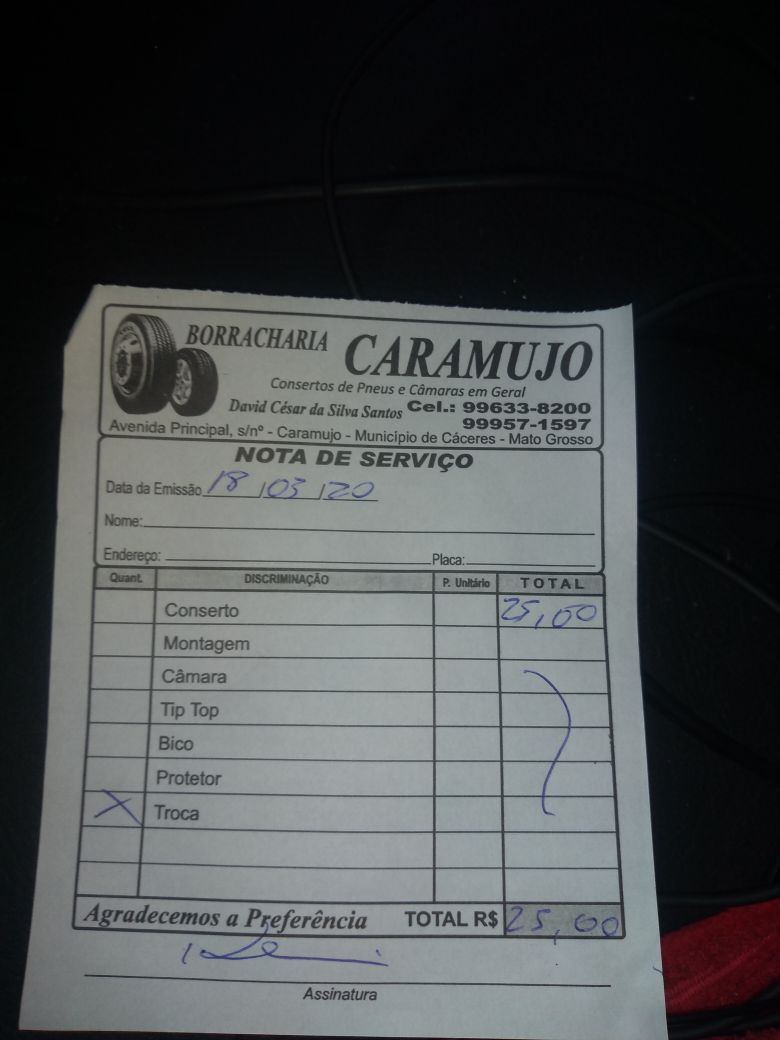 BORRACHARIA CARAMUJO
Consertos de Pneus e Câmaras em Geral
David César da Silva Santos Cel.: 99633-8200
99957-1597
Avenida Principal, s/nº - Caramujo - Município de Cáceres - Mato Grosso
NOTA DE SERVIÇO
Data da Emissão 18/03/20
Nome:
Endereço: Placa:
Quant. DISCRIMINAÇÃO P. Unitário TOTAL
Conserto 25,00
Montagem
Câmara
Tip Top
Bico
Protetor
X Troca
Agradecemos a Preferência TOTAL R$ 25,00
Assinatura